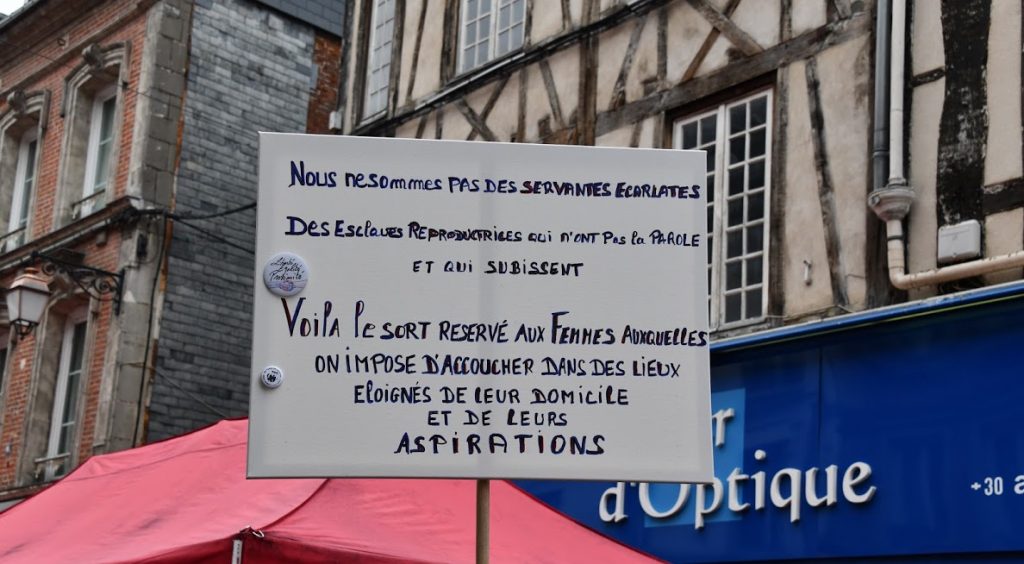 Nous ne sommes PAS DES SERVANTES ECARLATES
Des Esclaves REPRODUCTRICES qui n'ont Pas la PAROLE
ET QUI SUBISSENT
Voila le SORT RESERVÉ AUX FEMMES AUXQUELLES
ON IMPOSE D'ACCOUCHER DANS DES LIEUX
ELOIGNÉS DE LEUR DOMICILE
ET DE LEURS
ASPIRATIONS
r
d'Optique
+30 a